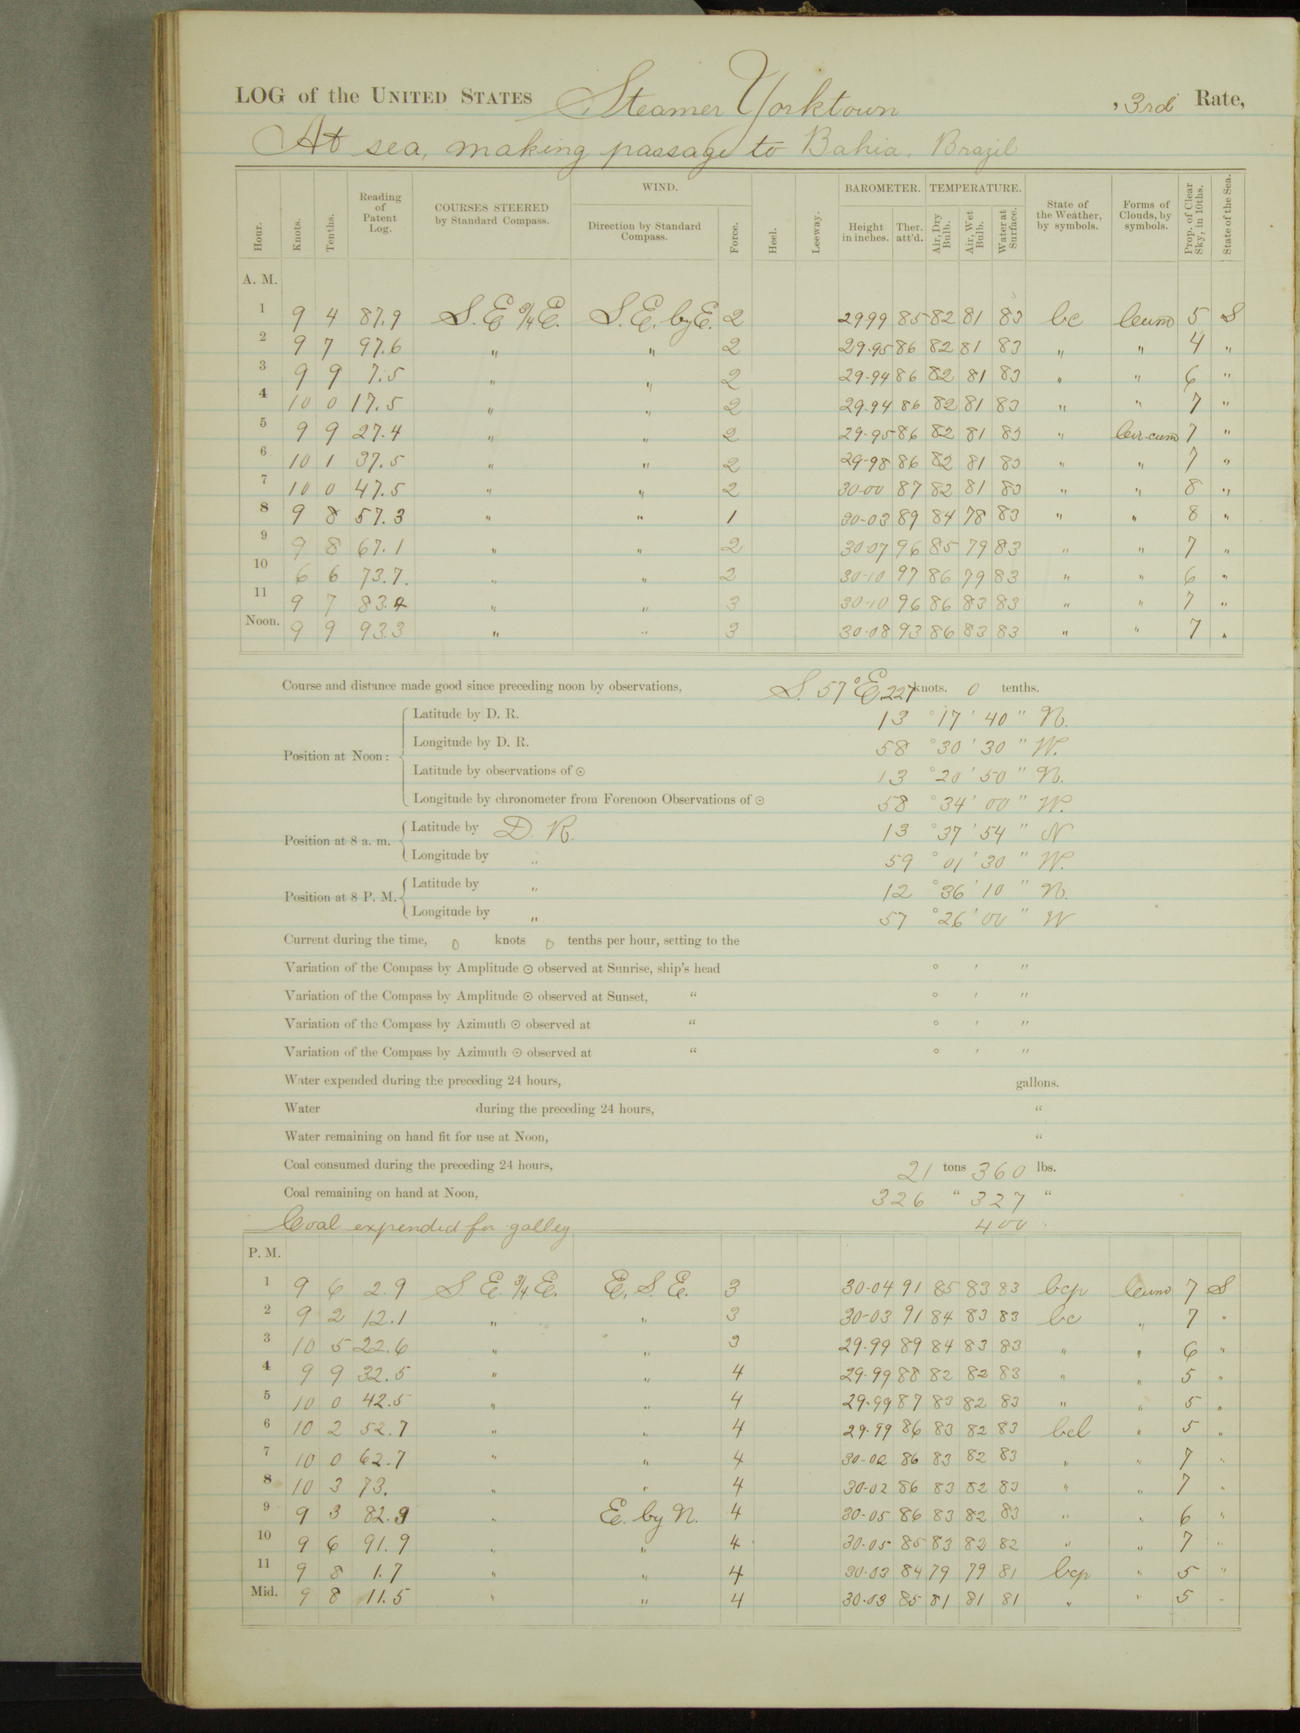 LOG of the UNITED STATES Steamer Yorktown, 3rd Rate,
At sea, making passage to Bahia. Brazil
Hour. Knots. Tenths. Reading of Patent Log. COURSES STEERED by Standard Compass. WIND. Direction by Standard Compass. Force. Heel. Leeway. BAROMETER. Height in inches. Ther. att'd. TEMPERATURE. Air, Dry Bulb. Air, Wet Bulb. Water at Surface. State of the Weather, by symbols. Forms of Clouds, by symbols. Prop. of Clear Sky, in 10ths. State of the Sea.
A. M.
1 9 4 87.9 S. E 3/4 E. S. E. by E. 2 29 99 85 82 81 83 bc Cum 5 S
2 9 7 97.6 " " 2 29.95 86 82 81 83 " " 4 "
3 9 9 7.5 " " 2 29.94 86 82 81 83 " " 6 "
4 10 0 17.5 " " 2 29.94 86 82 81 83 " " 7 "
5 9 9 27.4 " " 2 29.95 86 82 81 83 " Cir-cum 7 "
6 10 1 37.5 " " 2 29-98 86 82 81 83 " " 7 "
7 10 0 47.5 " " 2 30-00 87 82 81 83 " " 8 "
8 9 8 57.3 " " 1 30-03 89 84 78 83 " " 8 "
9 9 8 67.1 " " 2 30-07 96 85 79 83 " " 7 "
10 6 6 73.7. " " 2 30-10 97 86 79 83 " " 6 "
11 9 7 83.4 " " 3 30-10 96 86 83 83 " " 7 "
Noon. 9 9 93.3 " " 3 30-08 93 86 83 83 " " 7 "
Course and distance made good since preceding noon by observations, S. 57° E. 227 knots. 0 tenths.
Latitude by D. R. 13 ° 17 ' 40 " N.
Longitude by D. R. 58 ° 30 ' 30 " W.
Position at Noon:
Latitude by observations of ☉ 13 ° 20 ' 50 " N.
Longitude by chronometer from Forenoon Observations of ☉ 58 ° 34 ' 00 " W.
Position at 8 a. m. Latitude by D. R. 13 ° 37 ' 54 " N
Longitude by " 59 ° 01 ' 30 " W.
Position at 8 P. M. Latitude by " 12 ° 36 ' 10 " N.
Longitude by " 57 ° 26 ' 00 " W
Current during the time, 0 knots 0 tenths per hour, setting to the
Variation of the Compass by Amplitude ☉ observed at Sunrise, ship's head ° ' "
Variation of the Compass by Amplitude ☉ observed at Sunset, " ° ' "
Variation of the Compass by Azimuth ☉ observed at " ° ' "
Variation of the Compass by Azimuth ☉ observed at " ° ' "
Water expended during the preceding 24 hours, gallons.
Water during the preceding 24 hours, "
Water remaining on hand fit for use at Noon, "
Coal consumed during the preceding 24 hours, 21 tons 360 lbs.
Coal remaining on hand at Noon, 326 " 327 "
Coal expended for galley 400
P. M.
1 9 6 2.9 S E 3/4 E. E. S. E. 3 30-04 91 85 83 83 bcp Cum 7 S
2 9 2 12.1 " " 3 30-03 91 84 83 83 bc " 7 "
3 10 5 22.6 " " 3 29.99 89 84 83 83 " " 6 "
4 9 9 32.5 " " 4 29.99 88 82 82 83 " " 5 "
5 10 0 42.5 " " 4 29.99 87 83 82 83 " " 5 "
6 10 2 52.7 " " 4 29.99 86 83 82 83 bcl " 5 "
7 10 0 62.7 " " 4 30-02 86 83 82 83 " " 7 "
8 10 3 73. " " 4 30-02 86 83 82 83 " " 7 "
9 9 3 82.3 " E. by N. 4 30-05 86 83 82 83 " " 6 "
10 9 6 91.9 " " 4 30-05 85 83 82 82 " " 7 "
11 9 8 1.7 " " 4 30-03 84 79 79 81 bcp " 5 "
Mid. 9 8 11.5 " " 4 30.03 85 81 81 81 " " 5 "